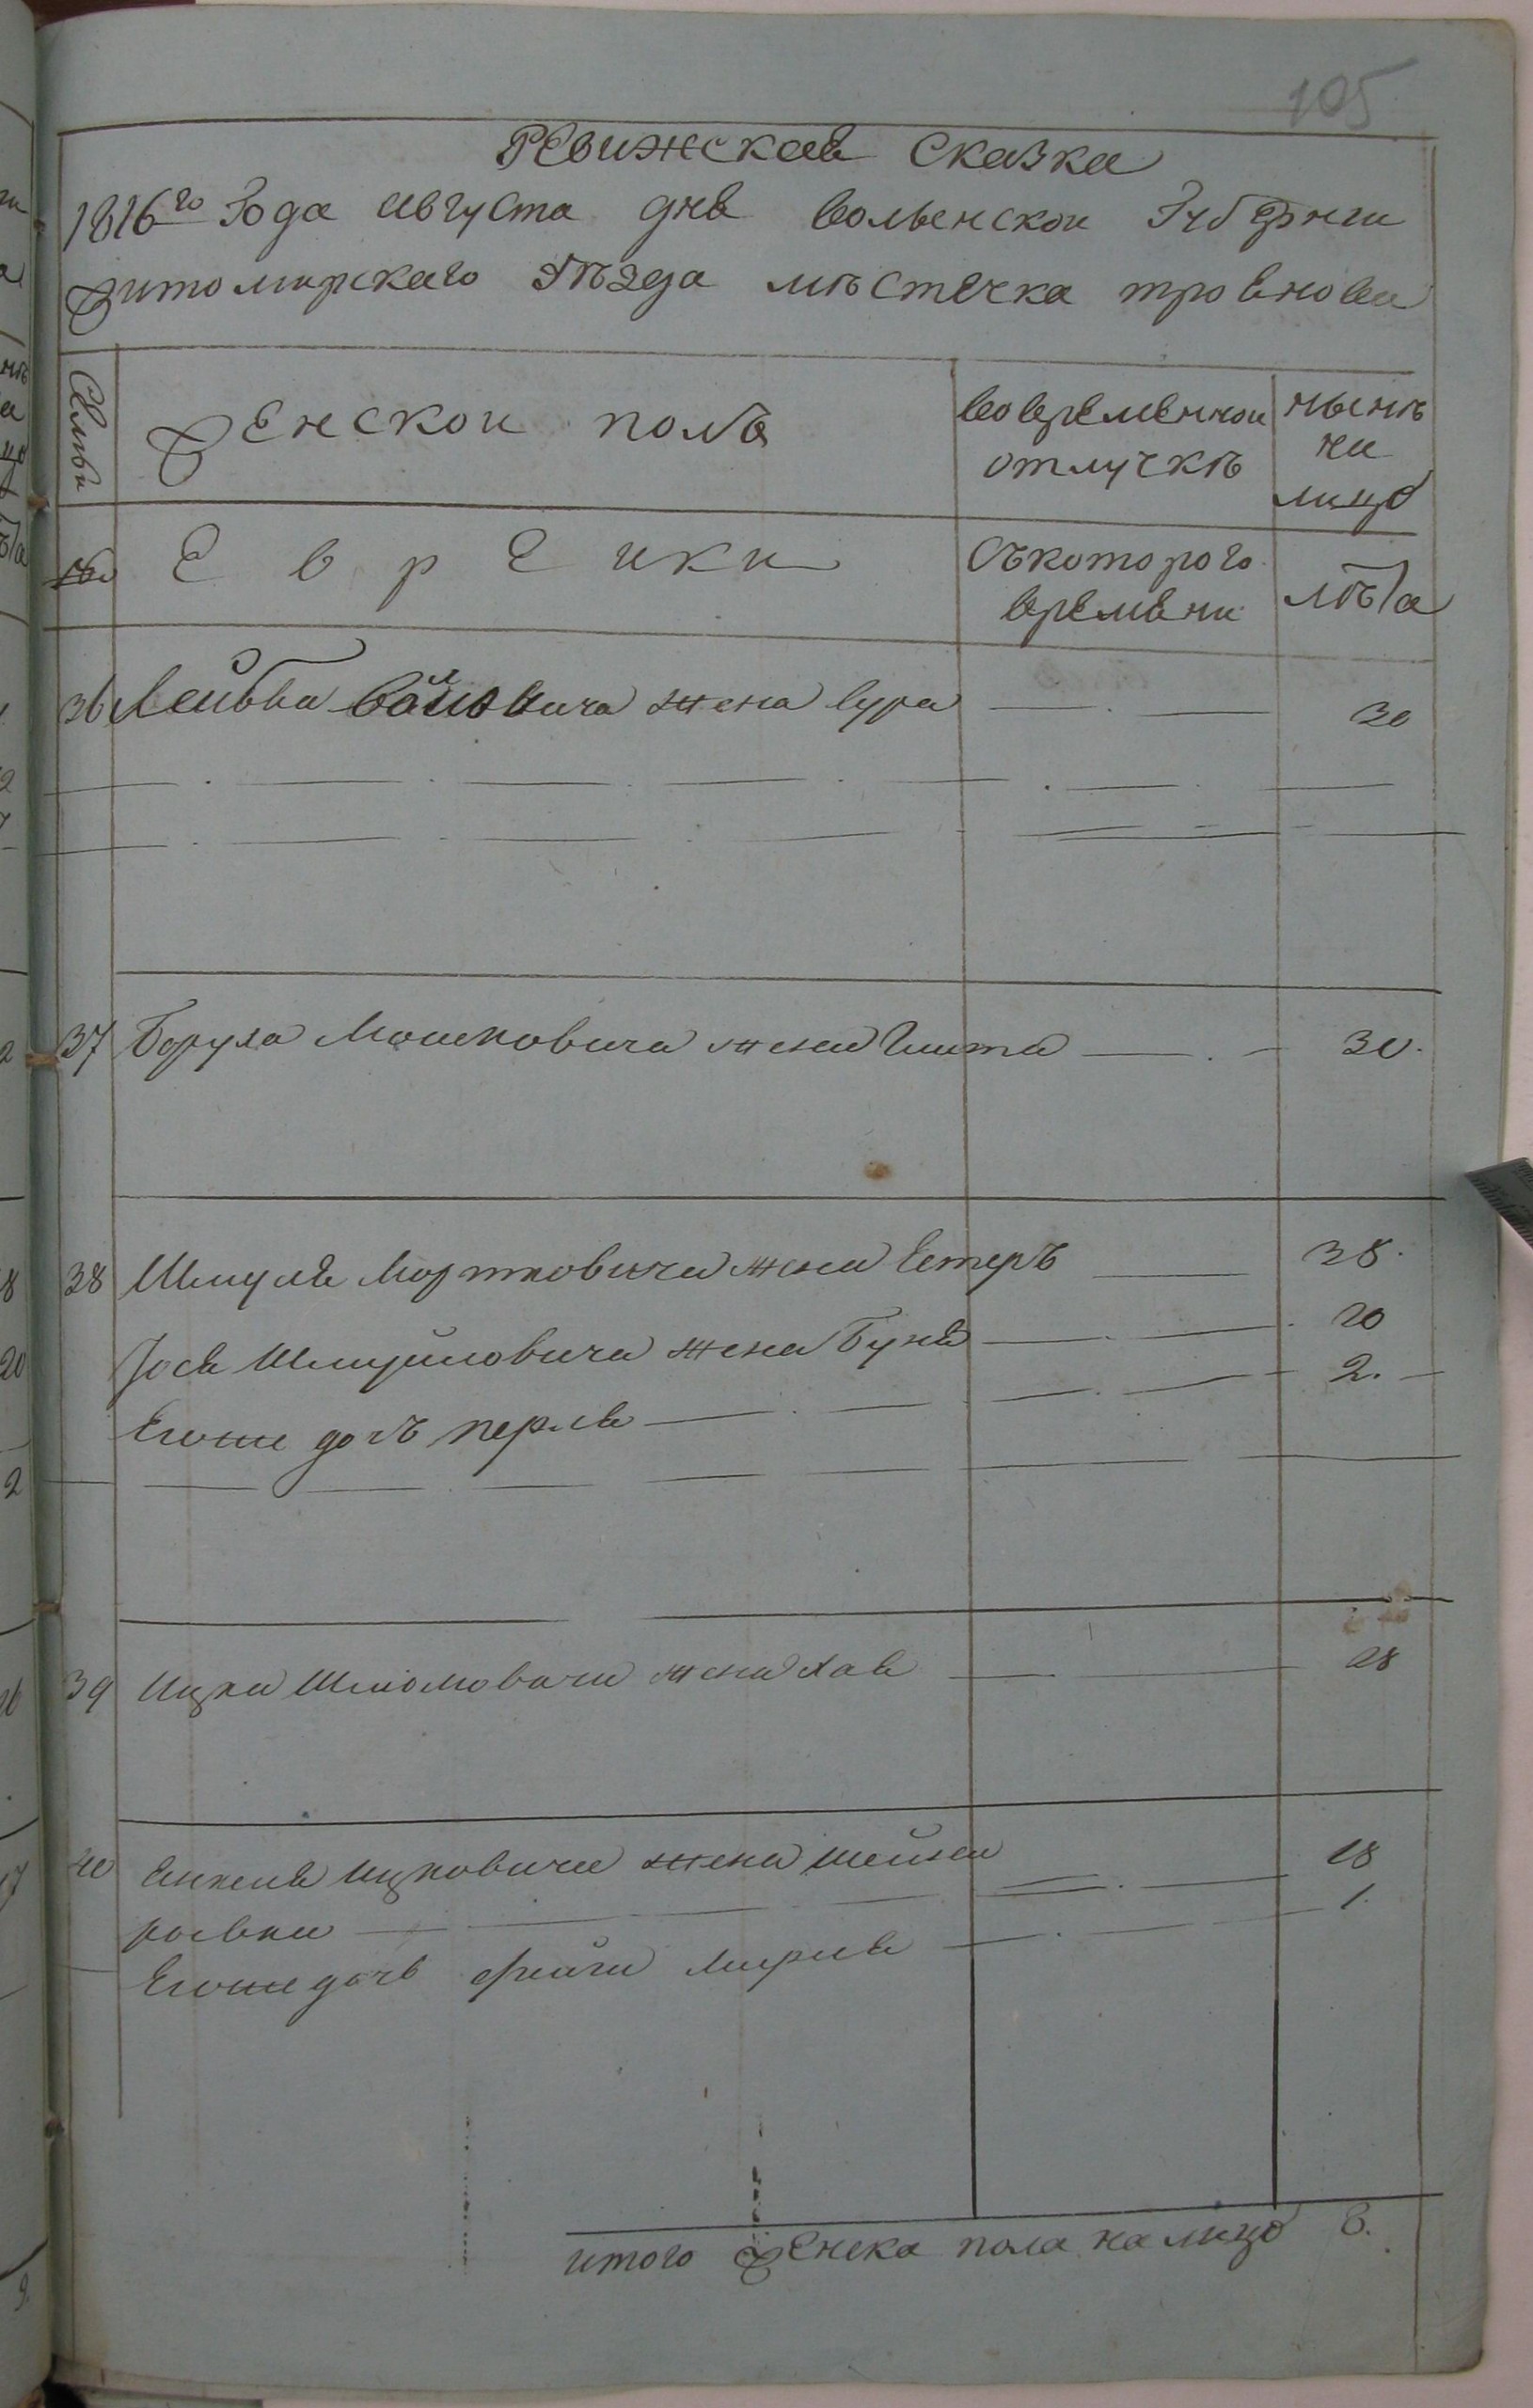 105
Ревижская Сказка
1816го Года августа дня Волынской Губернии
Житомирскаго уѣзда мѣстечка троянова
Семьи
Женской полъ
во временной отлучкѣ
нынѣ на лицо
№
Еврейки
съ котораго времени
лѣта
36 Лейбы жена сура 30
37 Боруха Мошковича жена Гитта 30.
38 Шмуля Мортковича жена Естеръ 38.
Иося Шмуйловича жена Буня 20
Егоже дочь перля 2.
39 Ицка Шломовича жена Хая 28
40 Янкеля Ицковича жена шейна 18
ривка
Егоже дочь фейга мирля 1.
итого Женска пола на лицо 8.